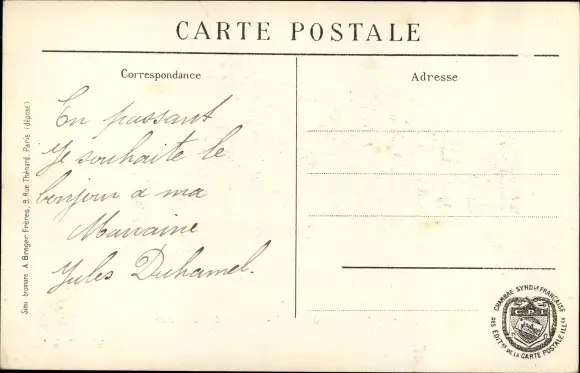 CARTE POSTALE
Correspondance
Adresse
En passant
Je souhaite le
bonjour a ma
Marraine
Jules Duhamel.
Simi bromure A. Breger Frères, 9, Rue Thénard, Paris (déposé)
CHAMBRE SYNDle FRANÇAISE
DES EDITrs DE LA CARTE POSTALE ILLée